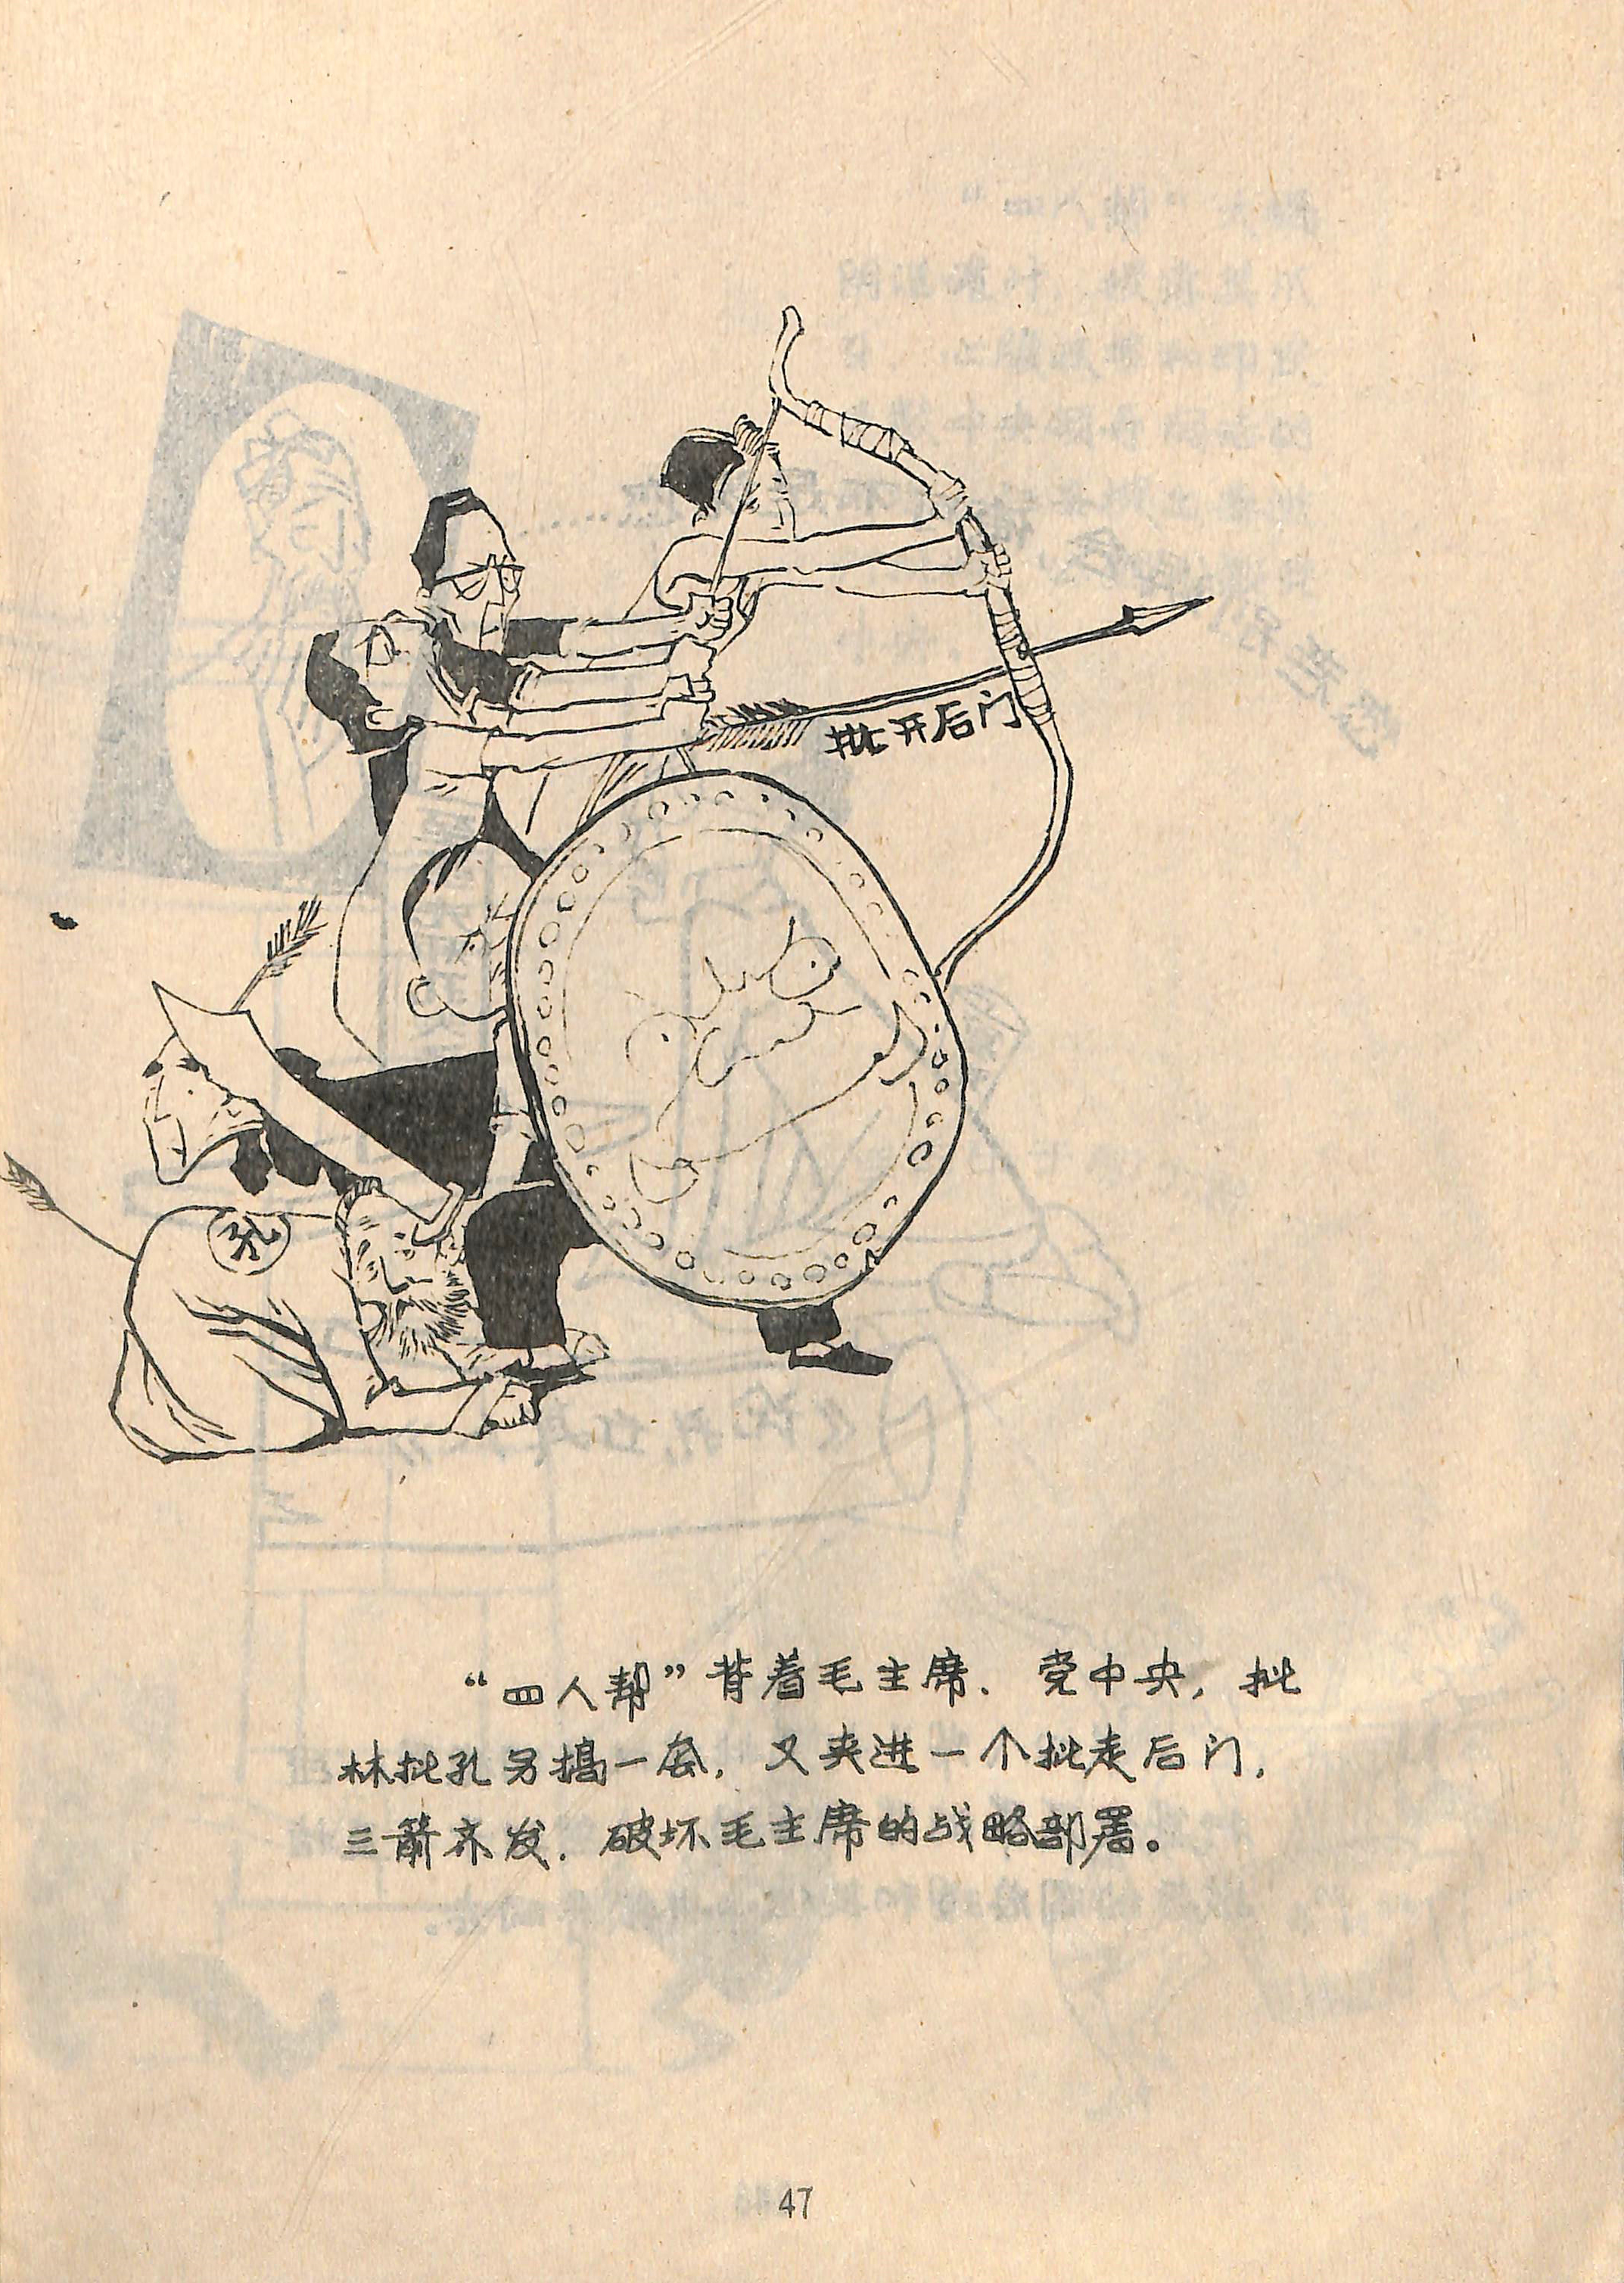 批开后门
孔
“四人帮”背着毛主席、党中央，批
林批孔另搞一套，又夹进一个批走后门，
三箭齐发，破坏毛主席的战略部署。
47